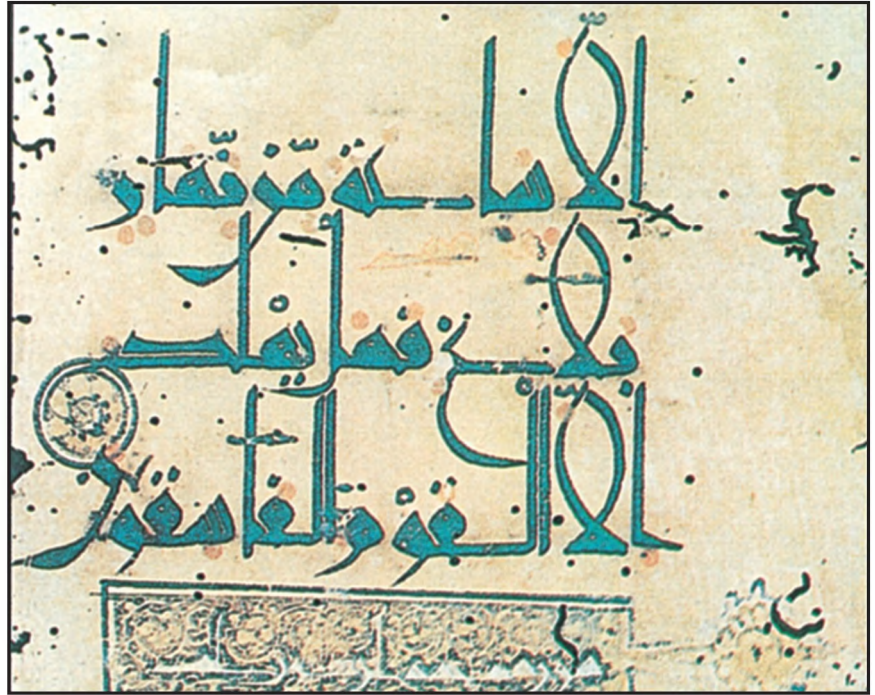 إلّا ساعة مّن نّهار
بلاغ فهل يهلك
إلّا القوم الفاسقون